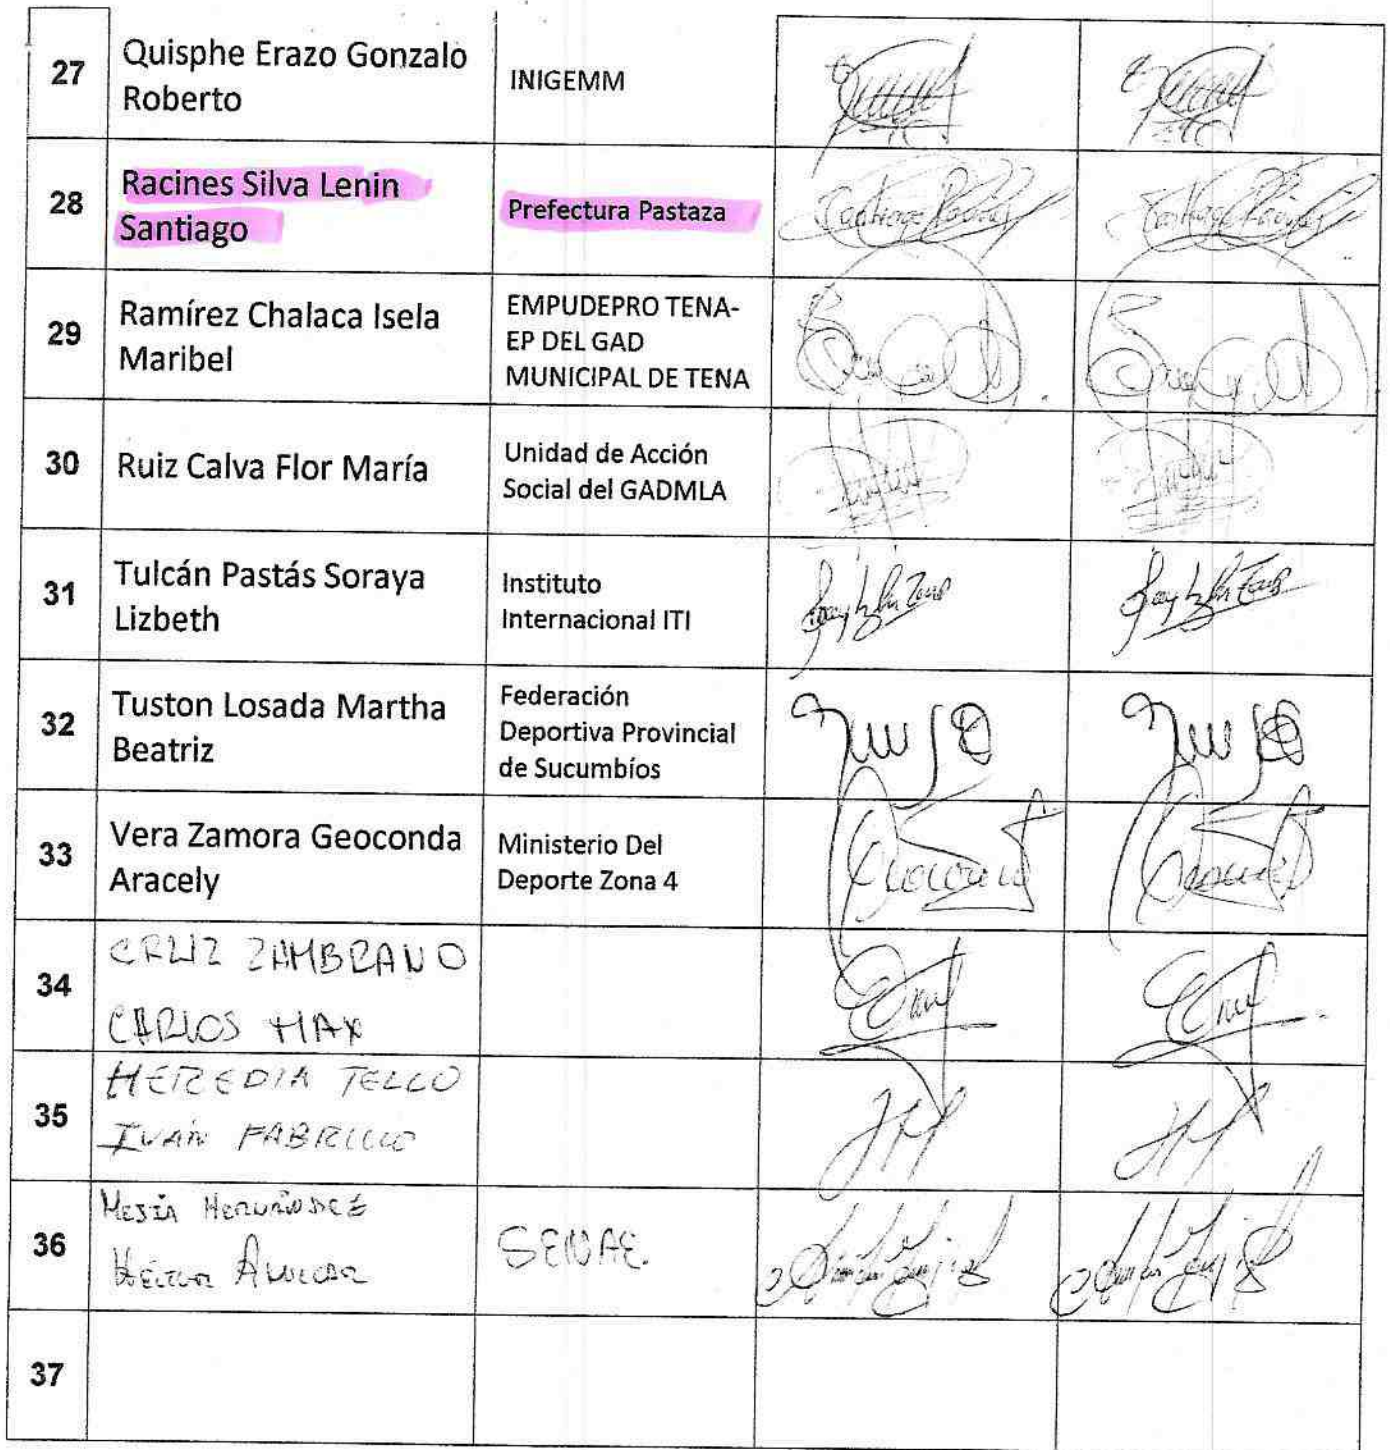 27
Quisphe Erazo Gonzalo
Roberto
INIGEMM
28
Racines Silva Lenin
Santiago
Prefectura Pastaza
29
Ramírez Chalaca Isela
Maribel
EMPUDEPRO TENA-
EP DEL GAD
MUNICIPAL DE TENA
30
Ruiz Calva Flor María
Unidad de Acción
Social del GADMLA
31
Tulcán Pastás Soraya
Lizbeth
Instituto
Internacional ITI
32
Tuston Losada Martha
Beatriz
Federación
Deportiva Provincial
de Sucumbíos
33
Vera Zamora Geoconda
Aracely
Ministerio Del
Deporte Zona 4
34
CRUZ ZAMBRANO
CARLOS MAX
35
HEREDIA TELLO
IVAN FABRICIO
36
MEJIA HERNÁNDEZ
HECTOR
SENAE.
37